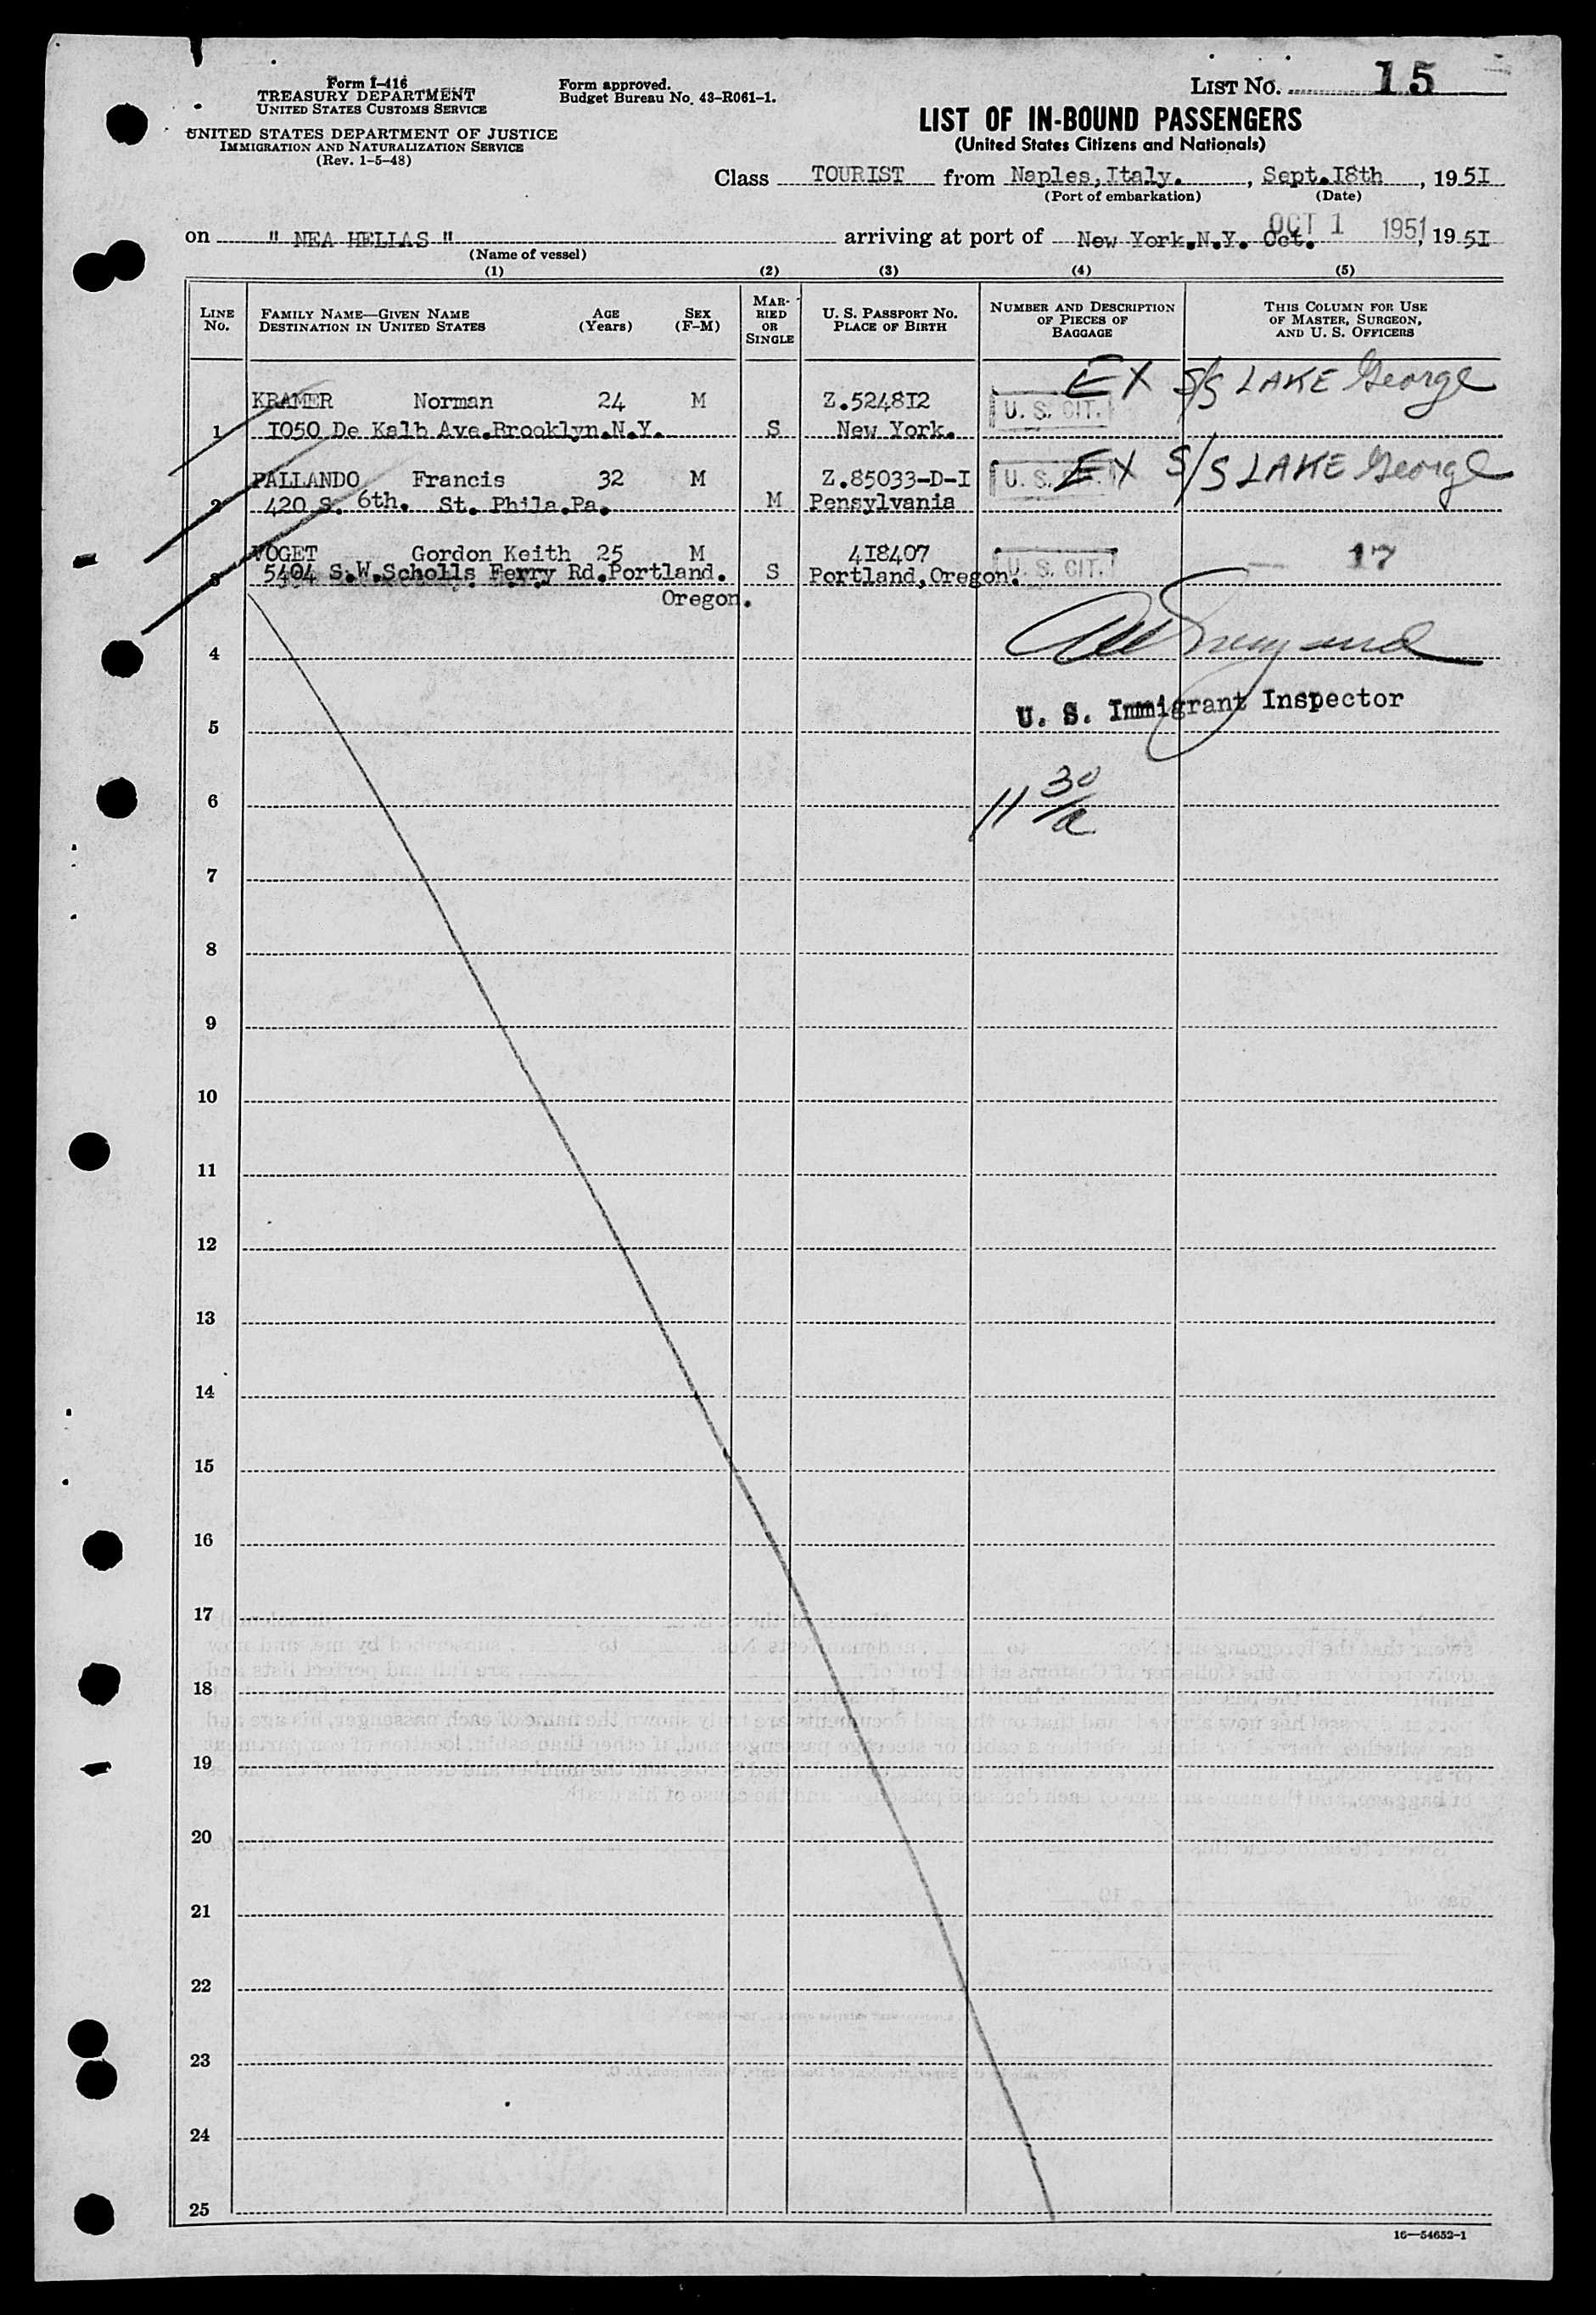 Form I-416
TREASURY DEPARTMENT
UNITED STATES CUSTOMS SERVICE
UNITED STATES DEPARTMENT OF JUSTICE
IMMIGRATION AND NATURALIZATION SERVICE
(Rev. 1-5-48)
Form approved.
Budget Bureau No. 43-R061-1.
LIST NO. 15
LIST OF IN-BOUND PASSENGERS
(United States Citizens and Nationals)
Class TOURIST from Naples,Italy. , Sept.I8th , 19 5I
(Port of embarkation) (Date)
on " NEA HELLAS " arriving at port of New York.N.Y. Oct. OCT 1 1951, 19 5I
(Name of vessel)
(1) (2) (3) (4) (5)
LINE NO. FAMILY NAME—GIVEN NAME DESTINATION IN UNITED STATES AGE (Years) SEX (F-M) MARRIED OR SINGLE U. S. PASSPORT NO. PLACE OF BIRTH NUMBER AND DESCRIPTION OF PIECES OF BAGGAGE THIS COLUMN FOR USE OF MASTER, SURGEON, AND U. S. OFFICERS
KRAMER Norman 24 M Z.5248I2 U. S. CIT. EX S/S LAKE George
1 I050 De Kalb Ave.Brooklyn.N.Y. S New York.
PALLANDO Francis 32 M Z.85033-D-I U. S. EX S/S LAKE George
2 420 S. 6th. St. Phila.Pa. M Pensylvania
VOGET Gordon Keith 25 M 4I8407 U. S. CIT. — 17
3 5404 S.W.Scholls Ferry Rd.Portland. S Portland,Oregon.
Oregon.
4
U. S. Immigrant Inspector
5
11 30/a
6
7
8
9
10
11
12
13
14
15
16
17
18
19
20
21
22
23
24
25
16—54652-1